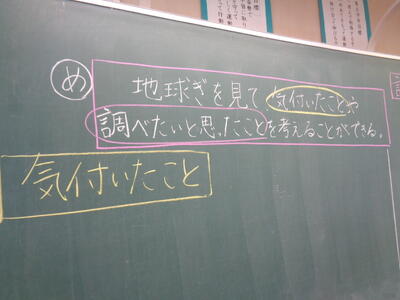 め
地球ぎを見て気付いたことや
調べたいと思ったことを考えることができる。
気付いたこと